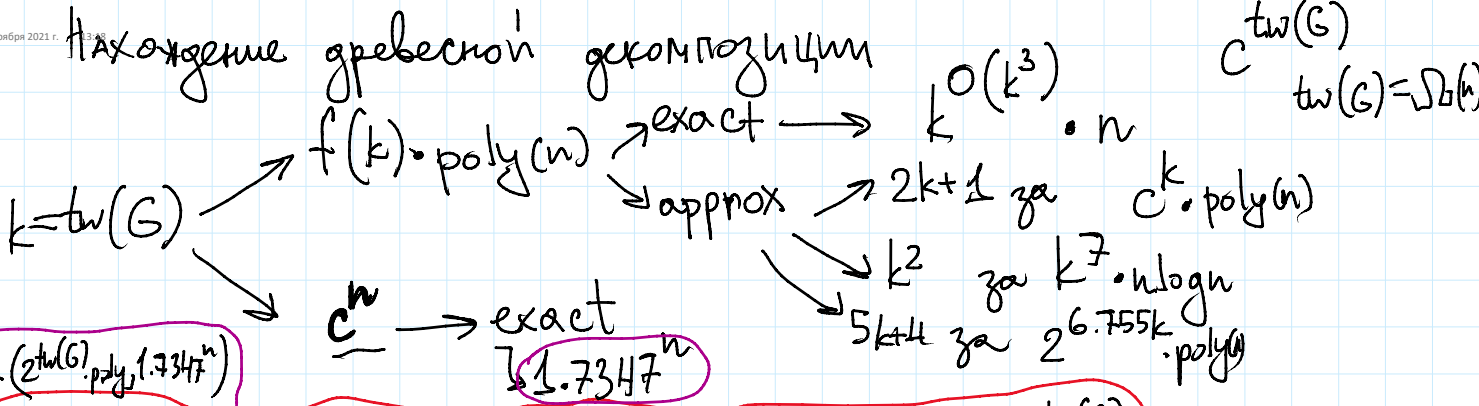 ября 2021 г. 13:28
Нахождение древесной декомпозиции
c^tw(G)
tw(G)=Ω(n)
k=tw(G)
f(k)·poly(n)
exact → k^O(k^3) · n
approx
2k+1 за c^k·poly(n)
k^2 за k^7·nlogn
5k+4 за 2^6.755k·poly(n)
c^n → exact
1.7347^n
(2^tw(G)·poly, 1.7347^n)